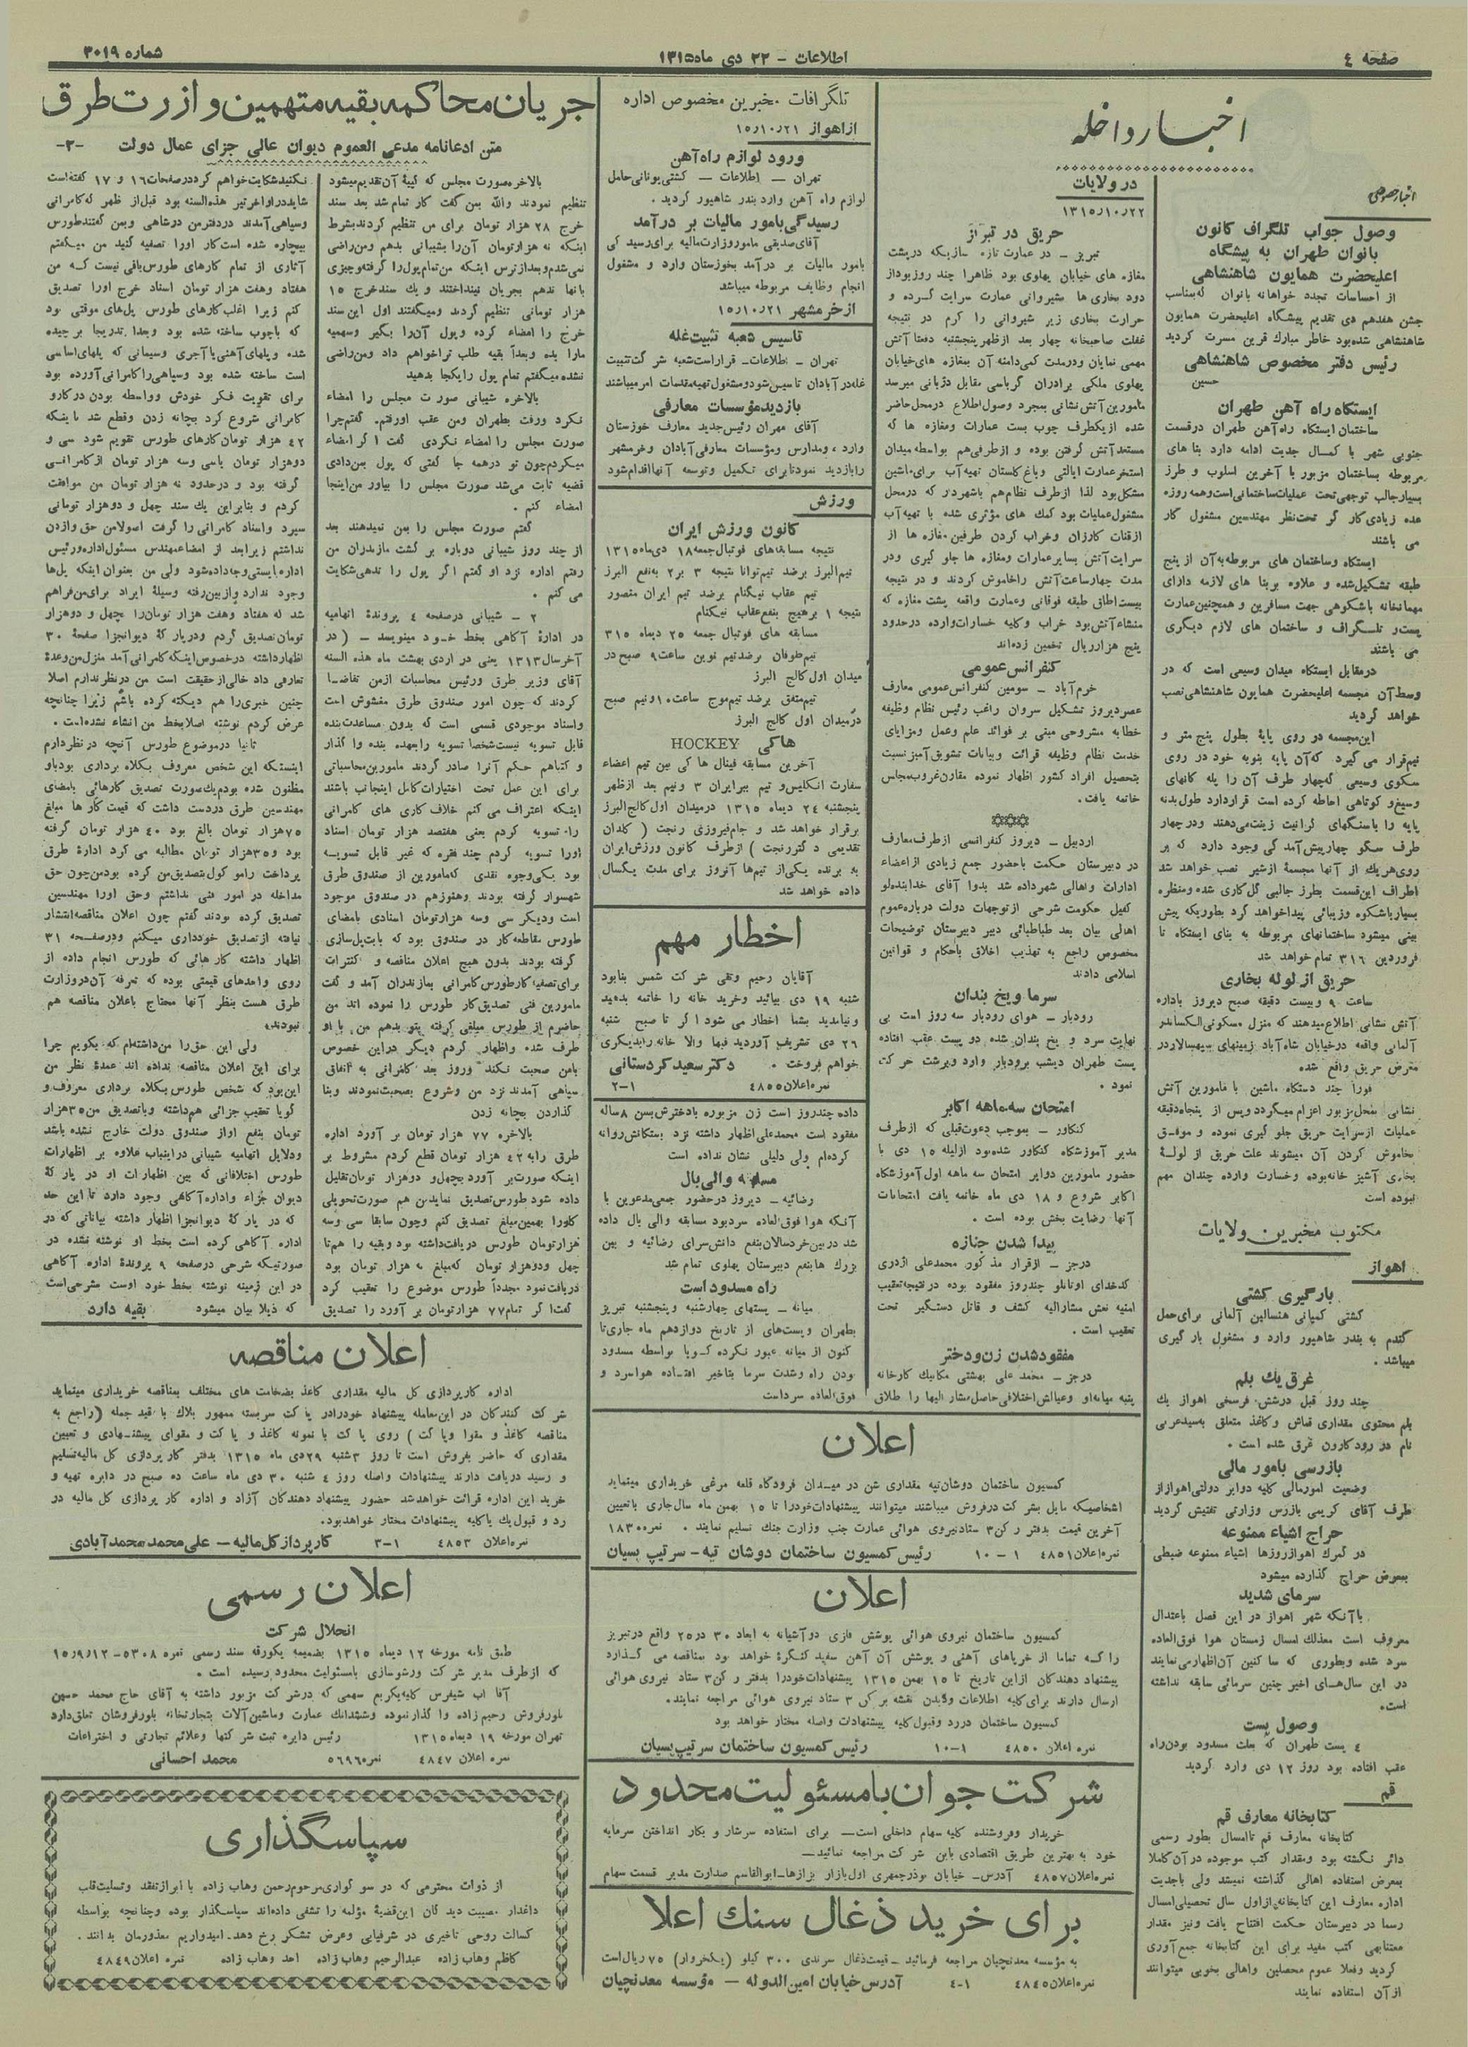 صفحه ٤
اطلاعات - ٢٢ دی ماه ١٣١٥
شماره ٣٠١٩
اخبار داخله
اخبار خصوصی
وصول جواب تلگراف کانون
بانوان طهران به پیشگاه
اعلیحضرت همایون شاهنشاهی
از احساسات تجدد خواهانه بانوان که بمناسب
جشن هفدهم دی تقدیم پیشگاه اعلیحضرت همایون
شاهنشاهی شده بود خاطر مبارك قرین مسرت گردید
رئیس دفتر مخصوص شاهنشاهی
حسین
ایستگاه راه آهن طهران
ساختمان ایستگاه راه آهن طهران درقسمت
جنوبی شهر با کمال جدیت ادامه دارد بنا های
مربوطه بساختمان مزبور با آخرین اسلوب و طرز
بسیار جالب توجهی تحت عملیات ساختمانی است وهمه روزه
عده زیادی کار گر تحت نظر مهندسین مشغول کار
می باشند
ایستگاه وساختمان های مربوطه به آن از پنج
طبقه تشکیل شده و علاوه بر بنا های لازمه دارای
مهمانخانه باشکوهی جهت مسافرین و همچنین عمارت
پست و تلگراف و ساختمان های لازم دیگری
می باشند
در مقابل ایستگاه میدان وسیعی است که در
وسط آن مجسمه اعلیحضرت همایون شاهنشاهی نصب
خواهد گردید
این مجسمه در روی پایه بطول پنج متر و
نیم قرار می گیرد که آن پایه بنوبه خود در روی
سکوی وسیعی که چهار طرف آن را پله کانهای
وسیع و کوتاهی احاطه کرده است قرار دارد طول بدنه
پایه را باسنگهای گرانیت زینت می دهند و درچهار
طرف سکو چهار پیش آمد گی وجود دارد که بر
روی هریك از آنها مجسمه ازشیر نصب خواهد شد
اطراف این قسمت بطرز جالبی گل کاری شده ومنظره
بسیار باشکوه وزیبائی پیدا خواهد کرد بطوریکه پیش
بینی میشود ساختمانهای مربوطه به بنای ایستگاه تا
فروردین ٣١٦ تمام خواهد شد
حریق از لوله بخاری
ساعت ٩ وبیست دقیقه صبح دیروز باداره
آتش نشانی اطلاع میدهند که منزل مسکونی الکساندر
آلمانی واقعه درخیابان شاه آباد زمینهای سپهسالار در
معرض حریق واقع شده
فوراً چند دستگاه ماشین با مامورین آتش
نشانی بمحل مزبور اعزام میگردد و پس از پنجاه دقیقه
عملیات ازسرایت حریق جلو گیری نموده و موفق
بخاموش کردن آن میشوند علت حریق از لوله
بخاری آشپز خانه بوده وخسارت وارده چندان مهم
نبوده است
مکتوب مخبرین ولایات
اهواز
بارگیری کشتی
کشتی کمپانی هنسالین آلمانی برای حمل
گندم به بندر شاهپور وارد و مشغول بار گیری
میباشد .
غرق یك بلم
چند روز قبل درشش فرسخی اهواز یك
بلم محتوی مقداری قماش و کاغذ متعلق به سید عربی
نام در رود کارون غرق شده است .
بازرسی بامور مالی
وضعیت امورمالی کلیه دوایر دولتی اهواز از
طرف آقای کریمی بازرس وزارتی تفتیش گردید
حراج اشیاء ممنوعه
در گمرك اهواز روزها اشیاء ممنوعه ضبطی
بمعرض حراج گذارده میشود
سرمای شدید
با آنکه شهر اهواز در این فصل باعتدال
معروف است معذلك امسال زمستان هوا فوق العاده
سرد شده وبطوری که سا کنین آن اظهار می نمایند
در این سال های اخیر چنین سرمائی سابقه نداشته
است.
وصول پست
٤ پست طهران که بعلت مسدود بودن راه
عقب افتاده بود روز ١٢ دی وارد گردید
قم
کتابخانه معارف قم
کتابخانه معارف قم تا امسال بطور رسمی
دائر نگشته بود ومقدار کتب موجوده در آن کاملا
بمعرض استفاده اهالی گذاشته نمیشد ولی باجدیت
اداره معارف این کتابخانه از اول سال تحصیلی امسال
رسما در دبیرستان حکمت افتتاح یافت ونیز مقدار
معتنابهی کتب مفید برای این کتابخانه جمع آوری
گردید وفعلا عموم محصلین واهالی بخوبی میتوانند
از آن استفاده نمایند
در ولایات
١٣١٥/١٠/٢٢
حریق در تبراز
تبریز - در عمارت تازه سازیکه در پشت
مغازه های خیابان پهلوی بود ظاهراً چند روز بود از
دود بخاری ها بشیروانی عمارت سرایت کرده و
حرارت بخاری زیر شیروانی را گرم در نتیجه
غفلت صاحبخانه چهار بعد از ظهر پنجشنبه دفعتاً آتش
مهمی نمایان ودرمدت کمی دامنه آن بمغازه های خیابان
پهلوی ملکی برادران گرباسی مقابل دژبانی میرسد
مامورین آتش نشانی بمجرد وصول اطلاع در محل حاضر
شده از یکطرف چوب بست عمارات ومغازه ها که
مستعد آتش گرفتن بوده و از طرفی هم بواسطه میدان
استخر عمارت ایالتی و باغ گلستان تهیه آب برای ماشین
مشکل بود لذا از طرف نظام هم باشهردار که در محل
مشغول عملیات بود کمك های مؤثری شده با تهیه آب
از قنات کارزان وخراب کردن طرفین مغازه ها از
سرایت آتش بسایر عمارات ومغازه ها جلو گیری ودر
مدت چهار ساعت آتش را خاموش کردند و در نتیجه
بیست اطاق طبقه فوقانی وعمارت واقعه پشت مغازه که
منشاء آتش بود خراب و کلیه خسارات وارده درحدود
پنج هزار ریال تخمین زده اند
کنفرانس عمومی
خرم آباد - سومین کنفرانس عمومی معارف
عصر دیروز تشکیل سروان راغب رئیس نظام وظیفه
خطابه مشروحی مبنی بر فوائد علم وعمل ومزایای
خدمت نظام وظیفه قرائت وبیانات تشویق آمیز نسبت
بتحصیل افراد کشور اظهار نموده مقارن غروب مجلس
خاتمه یافت.
اردبیل - دیروز کنفرانسی از طرف معارف
در دبیرستان حکمت باحضور جمع زیادی از اعضاء
ادارات واهالی شهر داده شد بدوا آقای خدابنده لو
کفیل حکومت شرحی از توجهات دولت درباره عموم
اهالی بیان بعد طباطبائی دبیر دبیرستان توضیحات
مخصوص راجع به تهذیب اخلاق باحکام و قوانین
اسلامی دادند
سرما و یخ بندان
رودبار - هوای رودبار سه روز است بی
نهایت سرد و یخ بندان شده دو پست عقب افتاده
پست طهران دیشب برودبار وارد وبرشت حرکت
نمود .
امتحان سه ماهه اکابر
کنگاور - بموجب دعوت قبلی که از طرف
مدیر آموزشگاه کنگاور شده بود از لیله ١٥ دی با
حضور مامورین دوایر امتحان سه ماهه اول آموزشگاه
اکابر شروع و ١٨ دی ماه خاتمه یافت امتحانات
آنها رضایت بخش بوده است .
پیدا شدن جنازه
درجز - از قرار مذ کور محمدعلی ازدری
کدخدای اوتانلو چندروز مفقود بوده درنتیجه تعقیب
امنیه نعش مشارالیه کشف و قاتل دستگیر تحت
تعقیب است .
مفقود شدن زن ودختر
درجز - محمد علی بهشتی مکانیك کارخانه
پنبه میانه او وعیالش اختلافی حاصل مشار الیها را طلاق
تلگرافات مخبرین مخصوص اداره
از اهواز ١٥/١٠/٢١
ورود لوازم راه آهن
تهران - اطلاعات - کشتی یونانی حامل
لوازم راه آهن وارد بندر شاهپور گردید .
رسیدگی بامور مالیات بر درآمد
آقای صدیقی مامور وزارت مالیه برای رسید گی
بامور مالیات بر درآمد بخوزستان وارد و مشغول
انجام وظایف مربوطه میباشد
از خرمشهر ١٥/١٠/٢١
تاسیس شعبه تثبیت غله
تهران - اطلاعات - قرار است شعبه شر گت تثبیت
غله در آبادان تاسیس شود ومشغول تهیه مقدمات امر میباشند
بازدید مؤسسات معارفی
آقای مهران رئیس جدید معارف خوزستان
وارد ، ومدارس ومؤسسات معارفی آبادان وخرمشهر
را بازدید نمود تا برای تکمیل وتوسعه آنها اقدام شود
ورزش
کانون ورزش ایران
نتیجه مسابقه های فوتبال جمعه ١٨ دی ماه ١٣١٥
تیم البرز برضد تیم توانا نتیجه ٣ بر ٢ به نفع البرز
تیم عقاب نیگنام برضد تیم ایران منصور
نتیجه ١ برهیچ بنفع عقاب نیکنام
مسابقه های فوتبال جمعه ٢٥ دیماه ٣١٥
تیم طوفان برضد تیم نوین ساعت ٩ صبح در
میدان اول کالج البرز
تیم متفق برضد تیم موج ساعت ١٠ ونیم صبح
درمیدان اول کالج البرز
هاکی HOCKEY
آخرین مسابقه فینال ها کی بین تیم اعضاء
سفارت انگلیس و تیم ببر ایران ٣ ونیم بعد از ظهر
پنجشنبه ٢٤ دیماه ١٣١٥ درمیدان اول کالج البرز
برقرار خواهد شد و جام فیروزی رنجت ( گلدان
تقدیمی دکتر رنجت ) از طرف کانون ورزش ایران
به برنده یکی از تیم ها آنروز برای مدت یکسال
داده خواهد شد
اخطار مهم
آقایان رحیم وتقی شر کت شمس بنا بود
شنبه ١٩ دی بیائید وخرید خانه را خاتمه بدهید
ونیامدید بشما اخطار می شود اگر تا صبح شنبه
٢٦ دی تشریف آوردید فبها والا خانه را بدیگری
خواهم فروخت . دکتر سعید کردستانی
نمره اعلان ٤٨٥٥ ١-٢
داده چندروز است زن مزبوره بادخترش بسن ٨ ساله
مفقود است محمدعلی اظهار داشته نزد بستگانش روانه
کرده ام ولی دلیلی نشان نداده است
مسابقه والی بال
رضائیه - دیروز در حضور جمعی مدعوین با
آنکه هوا فوق العاده سرد بود مسابقه والی بال داده
شد در بین خردسالان بنفع دانش سرای رضائیه و بین
بزرك ها بنفع دبیرستان پهلوی تمام شد
راه مسدود است
میانه - پستهای چهارشنبه وپنجشنبه تبریز
بطهران و پست های از تاریخ دوازدهم ماه جاری تا
کنون از میانه عبور نکرده گویا بواسطه مسدود
بودن راه وشدت سرما بتاخیر افتاده هوا سرد و
فوق العاده سرد است
اعلان
کمسیون ساختمان دوشان تپه مقداری شن در میدان فرودگاه قلعه مرغی خریداری مینماید
اشخاصیکه مایل بشر کت درفروش میباشند میتوانند پیشنهادات خودرا تا ١٥ بهمن ماه سال جاری باتعیین
آخرین قیمت بدفتر رکن ٣ ستاد نیروی هوائی عمارت جنب وزارت جنك تسلیم نمایند . نمره ١٨٣٠٠
نمره اعلان ٤٨٥١ ١-١٠ رئیس کمسیون ساختمان دوشان تپه - سرتیپ بسیان
اعلان
کمسیون ساختمان نیروی هوائی پوشش فلزی دو آشیانه به ابعاد ٣٠ در ٢٥ واقع در تبریز
را که تماما از خرپاهای آهنی و پوشش آن آهن سفید کنگره خواهد بود بمناقصه می گذارد
پیشنهاد دهندگان از این تاریخ تا ١٥ بهمن ١٣١٥ پیشنهادات خودرا بدفتر رکن ٣ ستاد نیروی هوائی
ارسال دارند برای کلیه اطلاعات ودیدن نقشه برکن ٣ ستاد نیروی هوائی مراجعه نمایند.
کمسیون ساختمان در رد وقبول کلیه پیشنهادات واصله مختار خواهد بود
نمره اعلان ٤٨٥٠ ١-١٠ رئیس کمسیون ساختمان سرتیپ بسیان
شرکت جوان با مسئولیت محدود
خریدار وفروشنده کلیه سهام داخلی است - برای استفاده سرشار و بکار انداختن سرمایه
خود به بهترین طریق اقتصادی باین شر کت مراجعه نمائید-
نمره اعلان ٤٨٥٧ آدرس - خیابان بوذرجمهری اول بازار بزازها - ابوالقاسم صدارت مدیر قسمت سهام
برای خرید ذغال سنك اعلا
به مؤسسه معدنچیان مراجعه فرمائید - قیمت ذغال سرندی ٣٠٠ کیلو (یکخروار) ٧٥ ریال است
نمره اعلان ٤٨٤٥ ١-٤ آدرس خیابان امین الدوله - مؤسسه معدنچیان
جریان محاکمه بقیه متهمین وزارت طرق
متن ادعانامه مدعی العموم دیوان عالی جزای عمال دولت -٣-
بالاخره صورت مجلس که کپیه آن تقدیم میشود
تنظیم نمودند والله بمن گفت کار تمام شد بعد سند
خرج ٢٨ هزار تومان برای من تنظیم کردند بشرط
اینکه نه هزار تومان آن را بشیبانی بدهم ومن راضی
نمی شدم وبعد از ترس اینکه من تمام پول را گرفته وچیزی
بآنها ندهم بجریان نینداختند و یك سند خرج ١٥
هزار تومانی تنظیم کردند ومیگفتند اول این سند
خرج را امضاء کرده وپول آن را بگیر وسهمیه
مارا بده وبعداً بقیه طلب ترا خواهیم داد ومن راضی
نشده میگفتم تمام پول را یکجا بدهید
بالاخره شیبانی صورت مجلس را امضاء
نکرد ورفت بطهران ومن عقب اورفتم. گفتم چرا
صورت مجلس را امضاء نکردی گفت اگر امضاء
میکردم چون تو درهمه جا گفتی که پول بمن دادی
قضیه ثابت می شد صورت مجلس را بیاور من اینجا
امضاء کنم .
گفتم صورت مجلس را بمن نمیدهند بعد
از چند روز شیبانی دوباره بر گشت مازندران من
رفتم اداره نزد او گفتم اگر پول را ندهی شکایت
می کنم .
٢ - شیبانی درصفحه ٤ پرونده اتهامیه
در اداره آگاهی بخط خود مینویسد - ( در
آخر سال ١٣١٣ یعنی در اردی بهشت ماه هذه السنه
آقای وزیر طرق ورئیس محاسبات از من تقاضا
کردند که چون امور صندوق طرق مغشوش است
واسناد موجودی قسمی است که بدون مساعدت بنده
قابل تسویه نیست شخصا تسویه را بعهده بنده وا گذار
و کتباهم حکم آنرا صادر گردند مامورین محاسباتی
برای این عمل تحت اختیارات کامل اینجانب باشند
اینکه اعتراف می کنم خلاف کاری های کامرانی
را تسویه کردم یعنی هفتصد هزار تومان اسناد
اورا تسویه کردم چند فقره که غیر قابل تسویه
بود یکی وجوه نقدی که مامورین از صندوق طرق
شهسوار گرفته بودند وهنوزهم در صندوق موجود
است ودیگر سی وسه هزار تومان اسنادی بامضای
طورس مقاطعه کار در صندوق بود که بابت پل سازی
گرفته بودند بدون هیچ اعلان مناقصه و کنترات
برای تصفیه کار طورس کامرانی بمازندران آمد و گفت
مامورین فنی تصدیق کار طورس را نموده اند من
حاضرم از طورس مبلغی گرفته بتو بدهم من با او
طرف شده واظهار کردم دیگر در این خصوص
بامن صحبت نکند وروز بعد کامرانی به اتفاق
سیاهی آمدند نزد من وشروع بصحبت نمودند وبنا
گذاردن بچانه زدن
بالاخره ٧٧ هزار تومان بر آورد اداره
طرق رابه ٤٢ هزار تومان قطع کردم مشروط بر
اینکه صورت بر آورد بچهل ودوهزار تومان تقلیل
داده شود طورس تصدیق نمایدمن هم صورت تحویلی
کالورا بهمین مبلغ تصدیق کنم وچون سابقا سی وسه
هزار تومان طورس دریافت داشته بود وبقیه را هم تا
چهل ودوهزار تومان که مبلغ نه هزار تومان بود
دریافت نمود مجدداً طورس موضوع را تعقیب کرد
گفت اگر تمام ٧٧ هزار تومان بر آورد را تصدیق
نکنید شکایت خواهم کرد درصفحات ١٦ و ١٧ گفته است
شاید دراواخر تیر هذه السنه بود قبل از ظهر که کامرانی
وسیاهی آمدند دردفتر من درشاهی وبمن گفتند طورس
بیچاره شده است کار اورا تصفیه کنید من میگفتم
آثاری از تمام کارهای طورس باقی نیست که من
هفتاد وهفت هزار تومان اسناد خرج اورا تصدیق
کنم زیرا اغلب کارهای طورس پل های موقتی بود
که باچوب ساخته شده بود وبعدا تدریجا بر چیده
شده و پلهای آهنی یا آجری وسیمانی که پلهای اساسی
است ساخته شده بود وسیاهی را کامرانی آورده بود
برای تقویت فکر خودش وواسطه بودن در کار و
کامرانی شروع کرد بچانه زدن وقطع شد با ینکه
٤٢ هزار تومان کارهای طورس تقویم شود سی و
دوهزار تومان یاسی وسه هزار تومان از کامرانی
گرفته بود و درحدود نه هزار تومان من موافقت
کردم و بنابراین یك سند چهل و دوهزار تومانی
سپرد واسناد کامرانی را گرفت اصولا من حق وازدن
نداشتم زیرا بعد از امضاء مهندس مسئول اداره ورئیس
اداره ایستی وجه داده شود ولی من بعنوان اینکه پل ها
وجود ندارد وازبین رفته وسیلهٔ ایراد برای من فراهم
شد که هفتاد وهفت هزار تومان را بچهل و دوهزار
تومان تصدیق کردم ودر بار که دیوانجزا صفحه ٣٠
اظهار داشته درخصوص اینکه کامرانی آمد منزل من وعده
تعارفی داد خالی از حقیقت است من در نظر ندارم اصلا
چنین خبری را هم دیکته کرده باشم زیرا چنانچه
عرض کردم نوشته اصلا بخط من انشاء نشده است.
ثانیا در موضوع طورس آنچه در نظر دارم
اینستکه این شخص معروف بکلاه برداری بود باو
مظنون شده بودم یك صورت تصدیق کارهائی بامضای
مهندسین طرق دردست داشت که قیمت کار ها مبلغ
٧٥ هزار تومان بالغ بود ٤٠ هزار تومان گرفته
بود و ٣٥ هزار تومان مطالبه می کرد اداره طرق
پرداخت رامو کول بتصدیق من کرده بودمن چون حق
مداخله در امور فنی نداشتم وحق اورا مهندسین
تصدیق کرده بودند گفتم چون اعلان مناقصه انتشار
نیافته از تصدیق خودداری میکنم ودرصفحه ٣١
اظهار داشته کار هائی که طورس انجام داده از
روی واحدهای قیمتی بوده که تعرفه آن دروزارت
طرق هست بنظر آنها محتاج باعلان مناقصه هم
نبودند،
ولی این حق را من داشته ام که بگویم چرا
برای این اعلان مناقصه نداده اند عمدهٔ نظر من
این بود که شخص طورس بکلاه برداری معروف و
گویا تعقیب جزائی هم داشته و باتصدیق من ٣٥ هزار
تومان بنفع او از صندوق دولت خارج نشده باشد
ودلایل اتهامیه شیبانی در اینباب علاوه بر اظهارات
طورس اختلافاتی که بین اظهارات او در پار که
دیوان جزاء واداره آگاهی وجود دارد تا این حد
که در پار که دیوانجزا اظهار داشته بیاناتی که در
اداره آگاهی کرده است بخط او نوشته نشده در
صورتیکه شرحی درصفحه ٩ پرونده اداره آگاهی
در این زمینه نوشته بخط خود اوست مشرحی است
که ذیلا بیان میشود بقیه دارد
اعلان مناقصه
اداره کارپردازی کل مالیه مقداری کاغذ بضخامت های مختلف بمناقصه خریداری مینماید
شر کت کنندگان در این معامله پیشنهاد خودرادر پا کت سربسته ممهور بلاك با قید جمله (راجع به
مناقصه کاغذ و مقوا وپا کت) روی پا کت با نمونه کاغذ و پا کت و مقوای پیشنهادی و تعیین
مقداری که حاضر بفروش است تا روز ٣ شنبه ٢٩ دی ماه ١٣١٥ بدفتر کار پردازی کل مالیه تسلیم
و رسید دریافت دارند پیشنهادات واصله روز ٤ شنبه ٣٠ دی ماه ساعت ده صبح در دایره تهیه و
خرید این اداره قرائت خواهد شد حضور پیشنهاد دهندگان آزاد و اداره کار پردازی کل مالیه در
رد و قبول یك یا کلیه پیشنهادات مختار خواهد بود.
نمره اعلان ٤٨٥٣ ١-٣ کارپرداز کل مالیه - علی محمد محمدآبادی
اعلان رسمی
انحلال شرکت
طبق نامه مورخه ١٢ دیماه ١٣١٥ بضمیمه یکورقه سند رسمی نمره ٥٣٠٨-١٥/٩/١٢
که از طرف مدیر شر کت ورشوسازی بامسئولیت محدود رسیده است .
آقا اب شیفرس کلیه یکربع سهمی که درشر کت مزبور داشته به آقای حاج محمد حسین
بلور فروش رحیم زاده وا گذار نموده وششدانك عمارت وماشین آلات بتجارتخانه بلورفروشان تعلق دارد
تهران مورخه ١٩ دیماه ١٣١٥ رئیس دایره ثبت شر کتها وعلائم تجارتی و اختراعات
نمره اعلان ٤٨٤٧ نمره ٥٦٩٦ محمد احسانی
سپاسگذاری
از ذوات محترمی که در سو گواری مرحوم رحمن وهاب زاده با ابراز تفقد وتسلیت قلب
داغدار مصیبت دید گان این قضیهٔ مؤلمه را تشفی داده اند سپاسگذار بوده وچنانچه بواسطه
کسالت روحی تاخیری در شرفیابی وعرض تشکر رخ دهد. امیدواریم معذورمان بدانند.
کاظم وهاب زاده عبدالرحیم وهاب زاده احد وهاب زاده نمره اعلان ٤٨٤٩